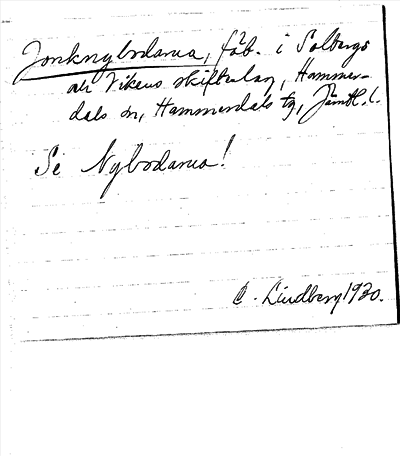 Jonknybodarna, fäb. i Solbergs
och Vikens skifteslag, Hammer-
dals sn, Hammerdals tg, Jämtl. l.
Se Nybodarna!
C. Lindberg 1920.